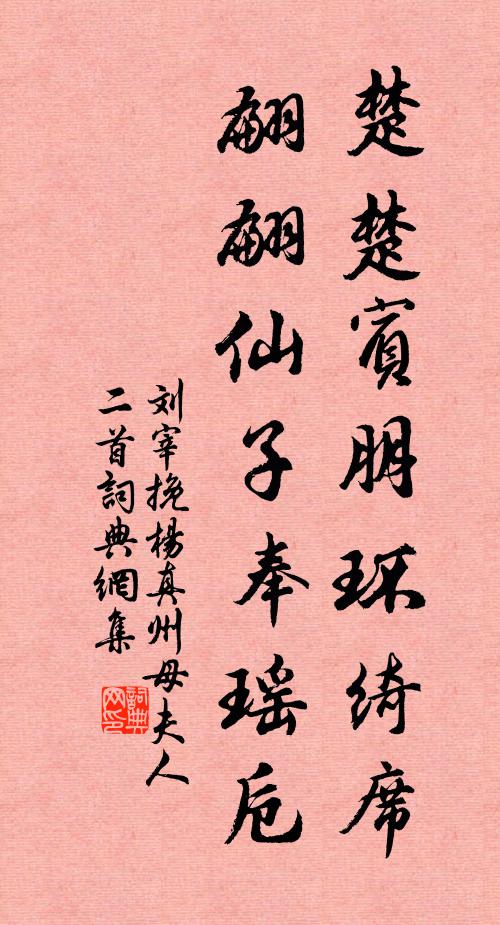 楚楚賓朋环綺席
翩翩仙子奉瑶卮
刘宰挽楊真州母夫人
二首詞典網集
詞典
网印